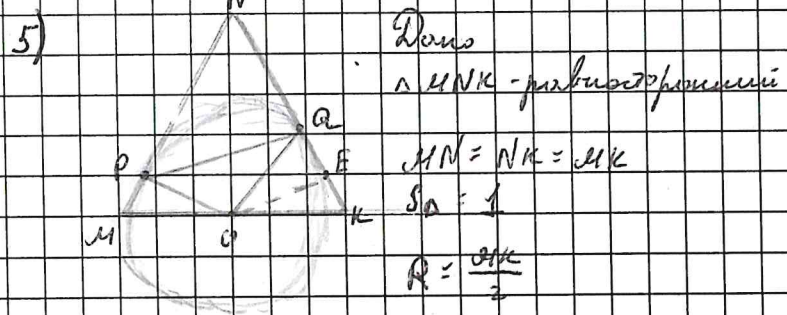 5)
N
P
Q
E
M
O
K
Дано
△ MNK - равносторонний
MN = NK = MK
S△ = 1
R = MK/2